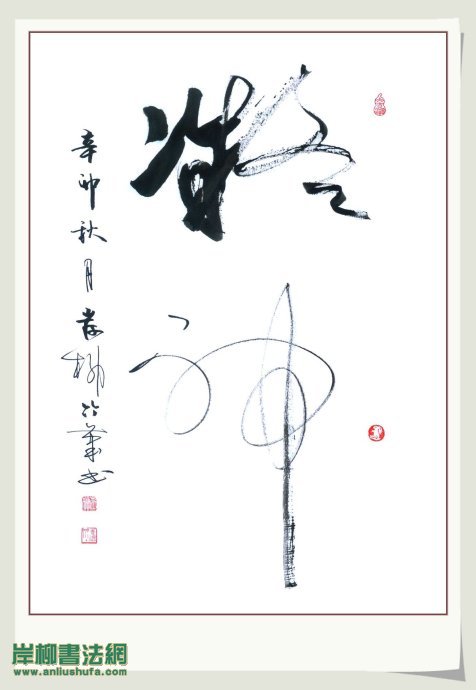 凝神
辛卯秋月岸柳
岸柳書法網
www.anliushufa.com